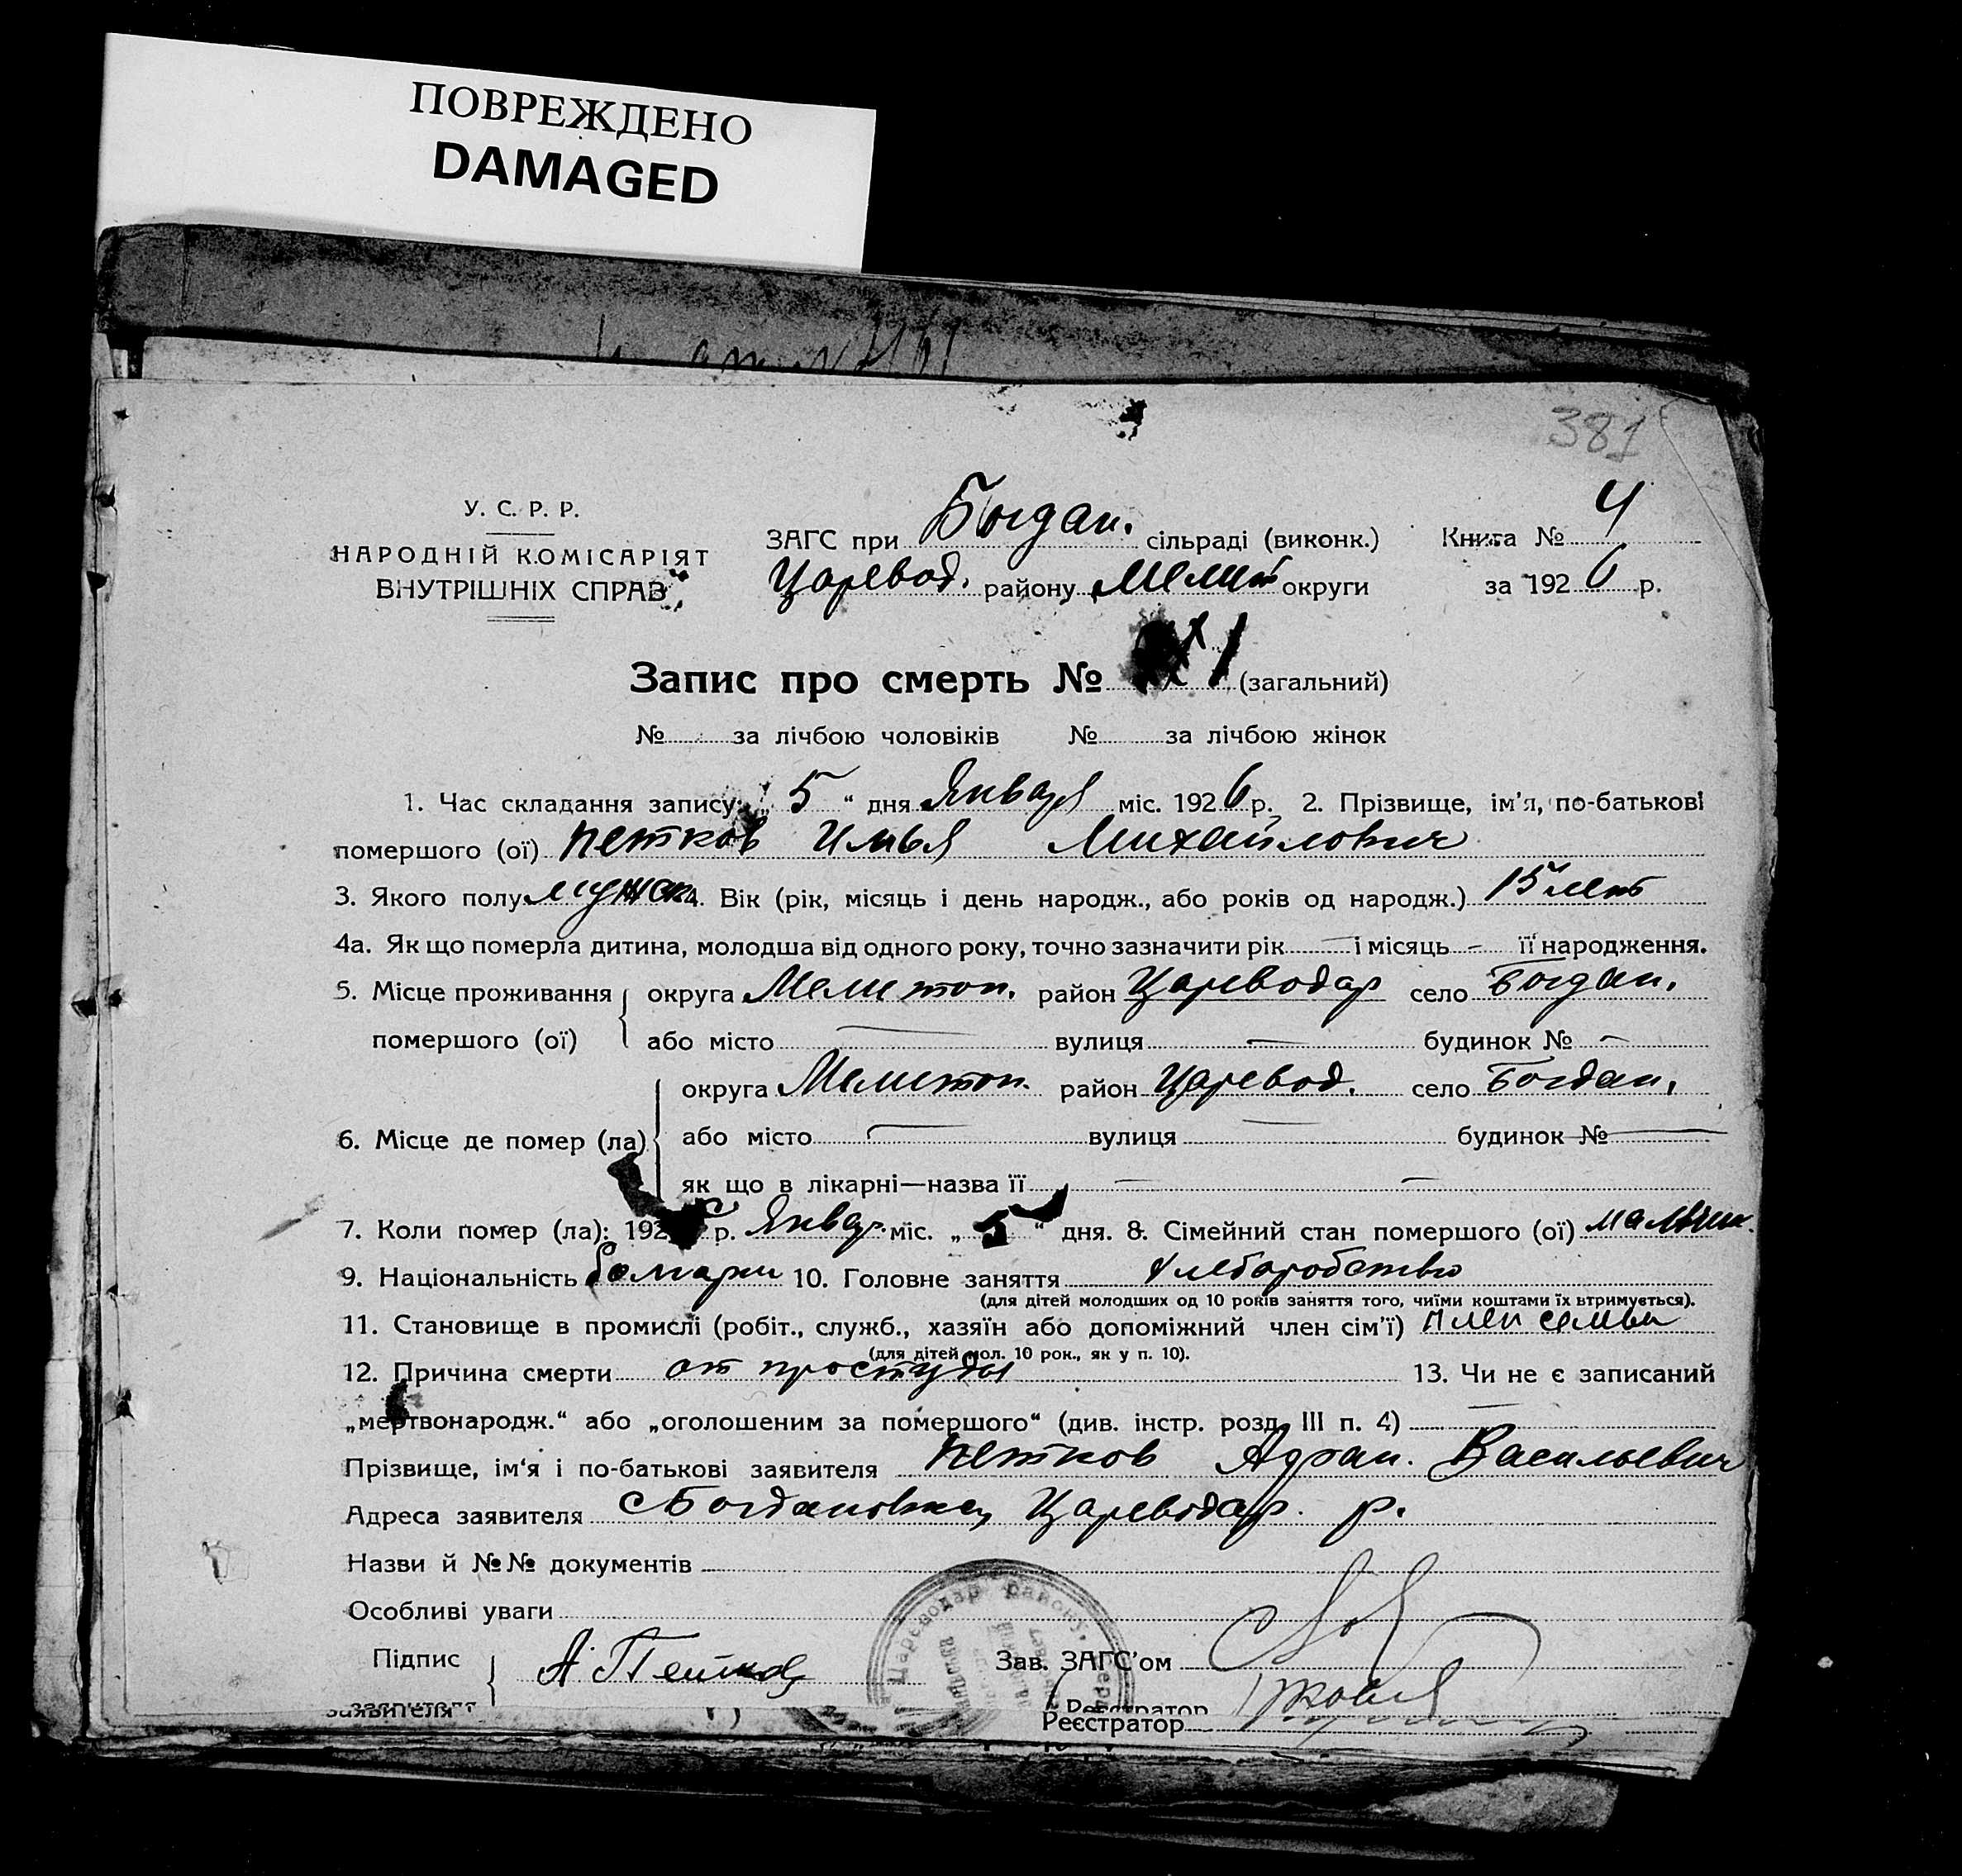 ПОВРЕЖДЕНО
DAMAGED
381
У. С. Р. Р.
НАРОДНІЙ КОМІСАРІЯТ
ВНУТРІШНІХ СПРАВ
ЗАГС при Богдан. сільраді (виконк.) Книга № 4
Царевод. району Мелит округи за 1926 р.
Запис про смерть № (загальний)
№ за лічбою чоловіків № за лічбою жінок
1. Час складання запису: „5“ дня Января міс. 1926 р. 2. Прізвище, ім'я, по-батькові
помершого (ої) Петков Илья Михайлович
3. Якого полу мужск 4. Вік (рік, місяць і день народж., або років од народж.) 15 лет
4а. Як що померла дитина, молодша від одного року, точно зазначити рік — і місяць — її народження.
5. Місце проживання округа Мелитоп. район Цареводар село Богдан.
помершого (ої) або місто — вулиця — будинок № —
округа Мелитоп. район Царевод. село Богдан.
6. Місце де помер (ла) або місто — вулиця — будинок № —
як що в лікарні—назва її — —
7. Коли помер (ла): 192 р. Январ. міс. „5“ дня. 8. Сімейний стан помершого (ої) мальчик.
9. Національність болгари 10. Головне заняття хлеборобство
(для дітей молодших од 10 років заняття того, чиїми коштами їх втримується).
11. Становище в промислі (робіт., служб., хазяїн або допоміжний член сім'ї) член семьи
(для дітей мол. 10 рок., як у п. 10).
12. Причина смерти от простуды 13. Чи не є записаний
„мертвонародж.“ або „оголошеним за помершого“ (див. інстр. розд. III п. 4) —
Прізвище, ім'я і по-батькові заявителя Петков Васильевич
Адреса заявителя с Богдановка, Цареводар. р.
Назви й №№ документів
Особливі уваги
Підпис А Петков Зав. ЗАГС'ом
заявителя Реєстратор
Реєстратор
Цареводар району,